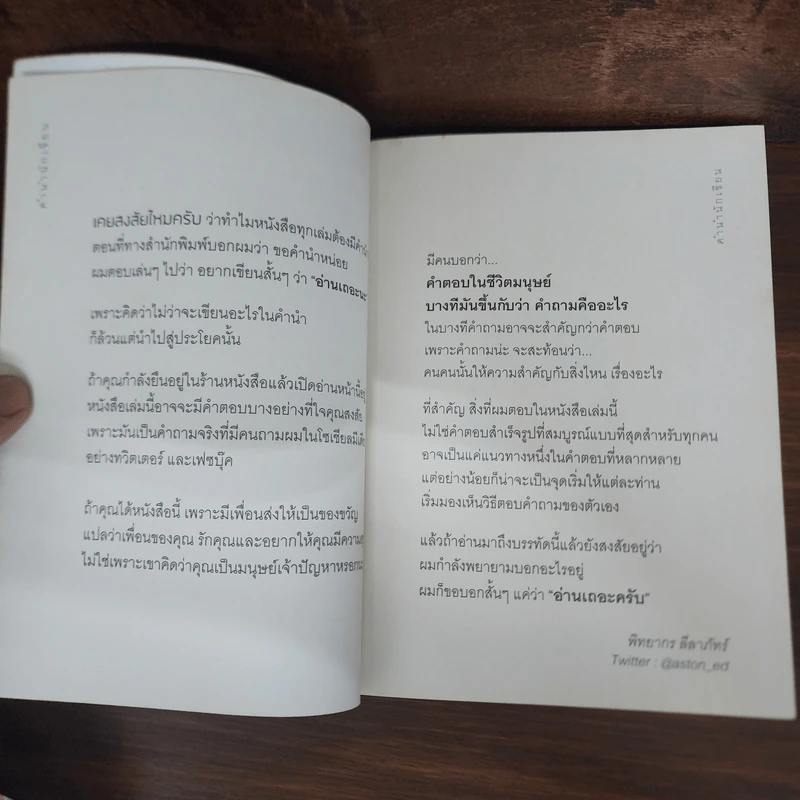 คำนำนักเขียน
เคยสงสัยไหมครับ ว่าทำไมหนังสือทุกเล่มต้องมีคำนำ
ตอนที่ทางสำนักพิมพ์บอกผมว่า ขอคำนำหน่อย
ผมตอบเล่นๆ ไปว่า อยากเขียนสั้นๆ ว่า "อ่านเถอะนะ
เพราะคิดว่าไม่ว่าจะเขียนอะไรในคำนำ
ก็ล้วนแต่นำไปสู่ประโยคนั้น
ถ้าคุณกำลังยืนอยู่ในร้านหนังสือแล้วเปิดอ่านหน้านี้อยู่
หนังสือเล่มนี้อาจจะมีคำตอบบางอย่างที่ใจคุณสงสัย
เพราะมันเป็นคำถามจริงที่มีคนถามผมในโซเชียลมีเดีย
อย่างทวิตเตอร์ และเฟซบุ๊ค
ถ้าคุณได้หนังสือนี้ เพราะมีเพื่อนส่งให้เป็นของขวัญ
แปลว่าเพื่อนของคุณ รักคุณและอยากให้คุณมีความ
ไม่ใช่เพราะเขาคิดว่าคุณเป็นมนุษย์เจ้าปัญหาหรอก
คำนำนักเขียน
มีคนบอกว่า...
คำตอบในชีวิตมนุษย์
บางทีมันขึ้นกับว่า คำถามคืออะไร
ในบางทีคำถามอาจจะสำคัญกว่าคำตอบ
เพราะคำถามน่ะ จะสะท้อนว่า...
คนคนนั้นให้ความสำคัญกับสิ่งไหน เรื่องอะไร
ที่สำคัญ สิ่งที่ผมตอบในหนังสือเล่มนี้
ไม่ใช่คำตอบสำเร็จรูปที่สมบูรณ์แบบที่สุดสำหรับทุกคน
อาจเป็นแค่แนวทางหนึ่งในคำตอบที่หลากหลาย
แต่อย่างน้อยก็น่าจะเป็นจุดเริ่มให้แต่ละท่าน
เริ่มมองเห็นวิธีตอบคำถามของตัวเอง
แล้วถ้าอ่านมาถึงบรรทัดนี้แล้วยังสงสัยอยู่ว่า
ผมกำลังพยายามบอกอะไรอยู่
ผมก็ขอบอกสั้นๆ แค่ว่า "อ่านเถอะครับ"
พิทยากร ลีลาภัทร์
Twitter : @aston_ed